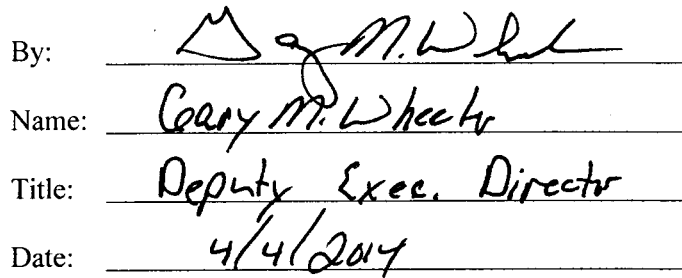 By: Gary M. Wheeler
Name: Gary M. Wheeler
Title: Deputy Exec. Director
Date: 4/4/2014